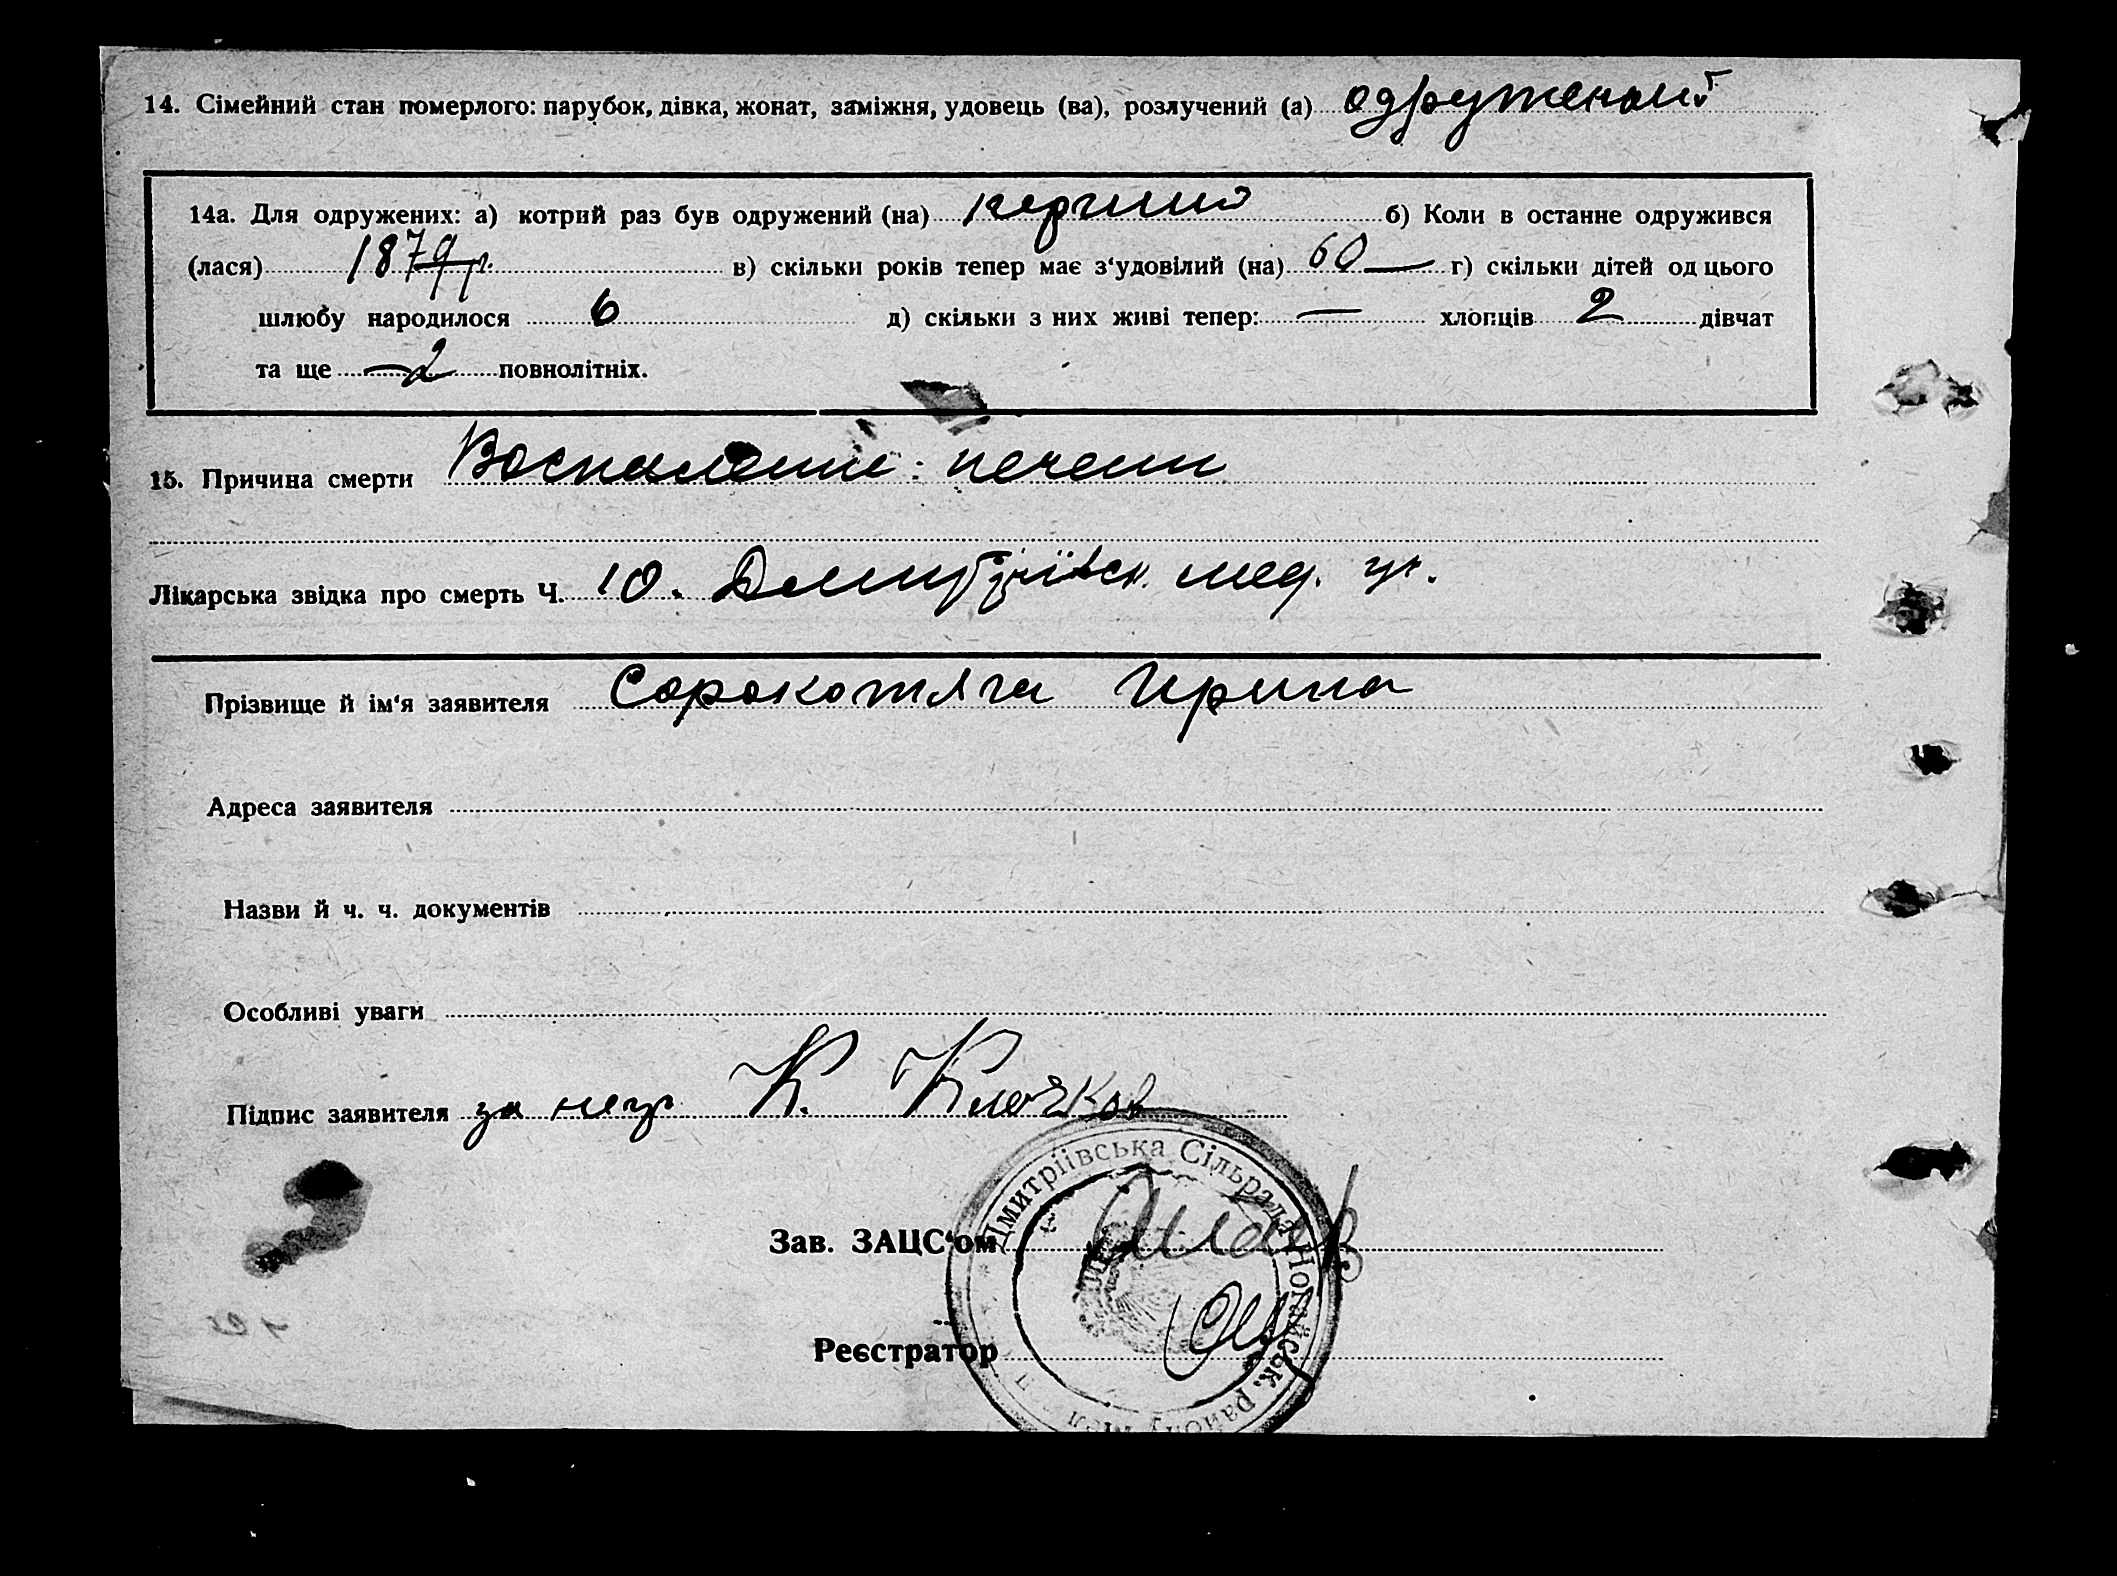 14. Сімейний стан померлого: парубок, дівка, жонат, заміжня, удовець (ва), розлучений (а) одружений
14а. Для одружених: а) котрий раз був одружений (на) перший б) Коли в останне одружився
(лася) 1879 р. в) скільки років тепер має з'удовілий (на) 60 — г) скільки дітей од цього
шлюбу народилося 6 д) скільки з них живі тепер: — хлопців 2 дівчат
та ще — 2 повнолітніх.
15. Причина смерти Воспаление печени
Лікарська звідка про смерть Ч. 10. Дмитріївск. мед. уч.
Прізвище й ім'я заявителя Сорокотяга Ирина
Адреса заявителя
Назви й ч. ч. документів
Особливі уваги
Підпис заявителя за негр. К. Клочков
Дмитріївська Сільрада Ногайськ. району
Зав. ЗАЦС'ом
Реєстратор